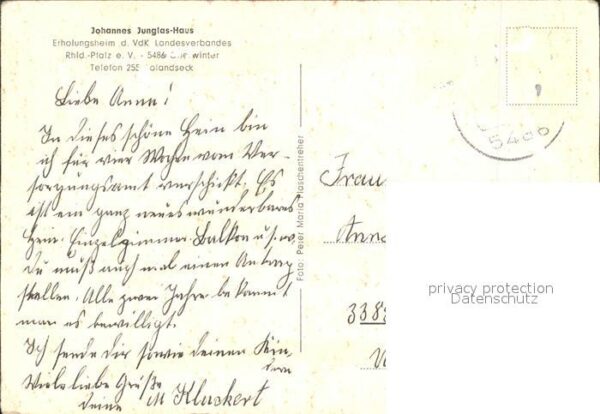 Johannes Junglas-Haus
Erholungsheim d. VdK Landesverbandes
Rhld.-Pfalz e. V. - 5486 winter
Telefon 255 olandseck
Liebe Anna!
In dieses schöne Heim bin
ich für vier Wochen vom Ver-
sorgungsamt verschickt. Es
ist ein ganz neues wunderbares
Heim. Einzelzimmer, Balkon u.s.w.
Du mußt auch mal einen Antrag
stellen. Alle zwei Jahre bekommt
man es bewilligt.
Ich sende dir sowie deinen Kin-
dern
Viele liebe Grüße
deine M Kluckert
Foto: Peter Maria Flaschentreher
5486
Frau
Ann
338
privacy protection
Datenschutz